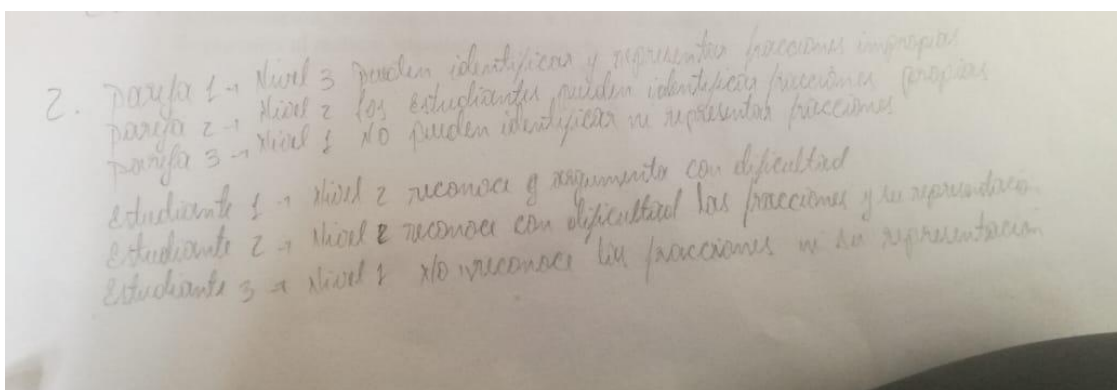 2. pareja 1 → Nivel 3 pueden identificar y representar fracciones impropias
pareja 2 → Nivel 2 los estudiantes pueden identificar fracciones propias
pareja 3 → Nivel 1 NO pueden identificar ni representar fracciones
Estudiante 1 → Nivel 2 reconoce y argumenta con dificultad
Estudiante 2 → Nivel 2 reconoce con dificultad las fracciones y su representación
Estudiante 3 → Nivel 1 NO reconoce las fracciones ni su representación